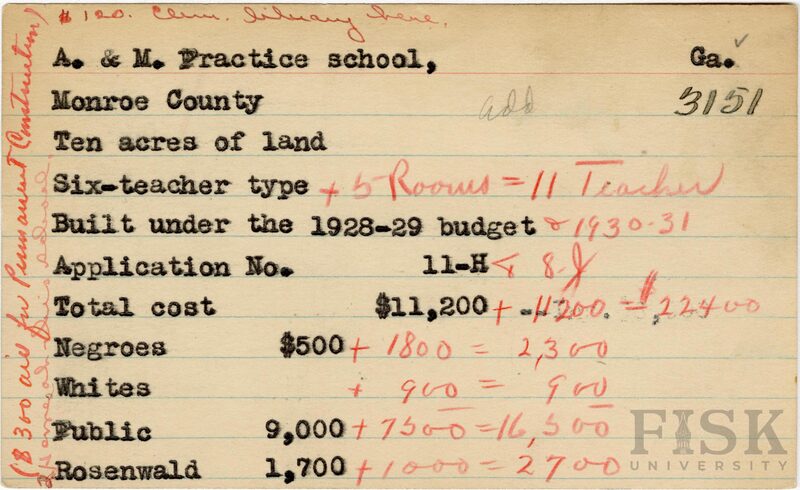 $120. Elem. library here.
A. & M. Practice school, Ga.
Monroe County add 3151
Ten acres of land
Six-teacher type + 5 Rooms = 11 Teacher
Built under the 1928-29 budget & 1930-31
Application No. 11-H & 8-J
Total cost $11,200 + 11200 = $22400
Negroes $500 + 1800 = 2,300
Whites + 900 = 900
Public 9,000 + 7500 = 16,500
Rosenwald 1,700 + 1000 = 2700
($300 aid for Permanent Construction)
school
FISK
UNIVERSITY